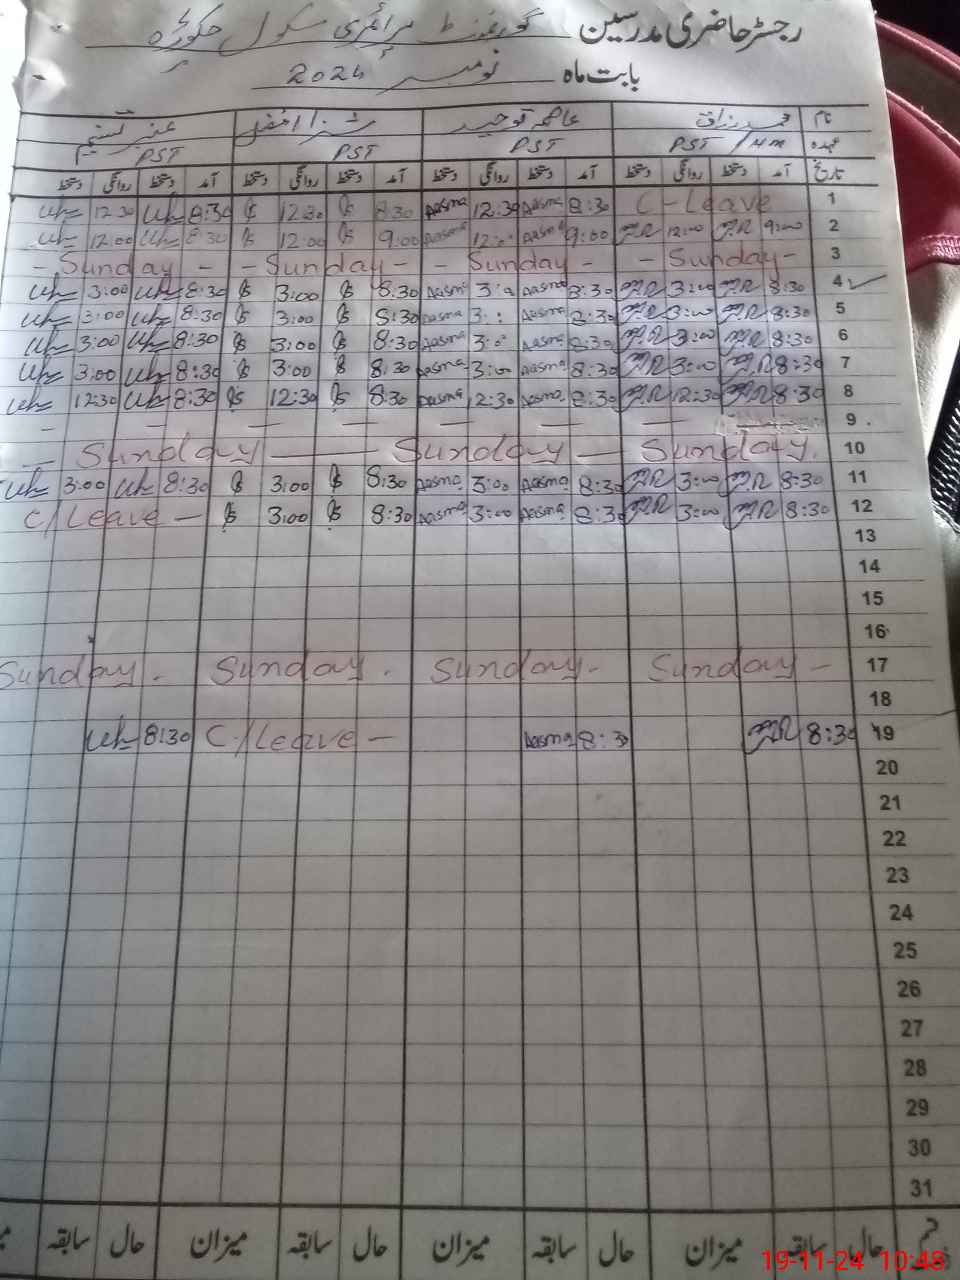 رجسٹر حاضری مدرسین گورنمنٹ پرائمری سکول
بابت ماہ نومبر 2024
نام محمد رزاق عاصمہ توحید
عہدہ PST/HM PST PST PST
تاریخ آمد دستخط روانگی دستخط آمد دستخط روانگی دستخط آمد دستخط روانگی دستخط آمد دستخط روانگی دستخط
1 C-Leave 8:30 Aasma 12:30 Aasma 8:30 12:30 8:30 12:30
2 9:00 12:00 9:00 Aasma 12:00 Aasma 9:00 12:00 8:30 12:00
3 - Sunday - - Sunday - - Sunday - - Sunday -
4 8:30 3:00 8:30 Aasma 3:00 Aasma 8:30 3:00 8:30 3:00
5 8:30 3:00 8:30 Aasma 3:00 Aasma 8:30 3:00 8:30 3:00
6 8:30 3:00 8:30 Aasma 3:00 Aasma 8:30 3:00 8:30 3:00
7 8:30 3:00 8:30 Aasma 3:00 Aasma 8:30 3:00 8:30 3:00
8 8:30 12:30 8:30 Aasma 12:30 Aasma 8:30 12:30 8:30 12:30
9
10 Sunday. Sunday Sunday
11 8:30 3:00 8:30 Aasma 3:00 Aasma 8:30 3:00 8:30 3:00
12 8:30 3:00 8:30 Aasma 3:00 Aasma 8:30 3:00 C/Leave -
13
14
15
16
17 Sunday - Sunday - Sunday . Sunday .
18
19 8:30 8:30 Aasma C/Leave - 8:30
20
21
22
23
24
25
26
27
28
29
30
31
حال سابقہ میزان حال سابقہ میزان حال سابقہ میزان حال سابقہ
19-11-24 10:48